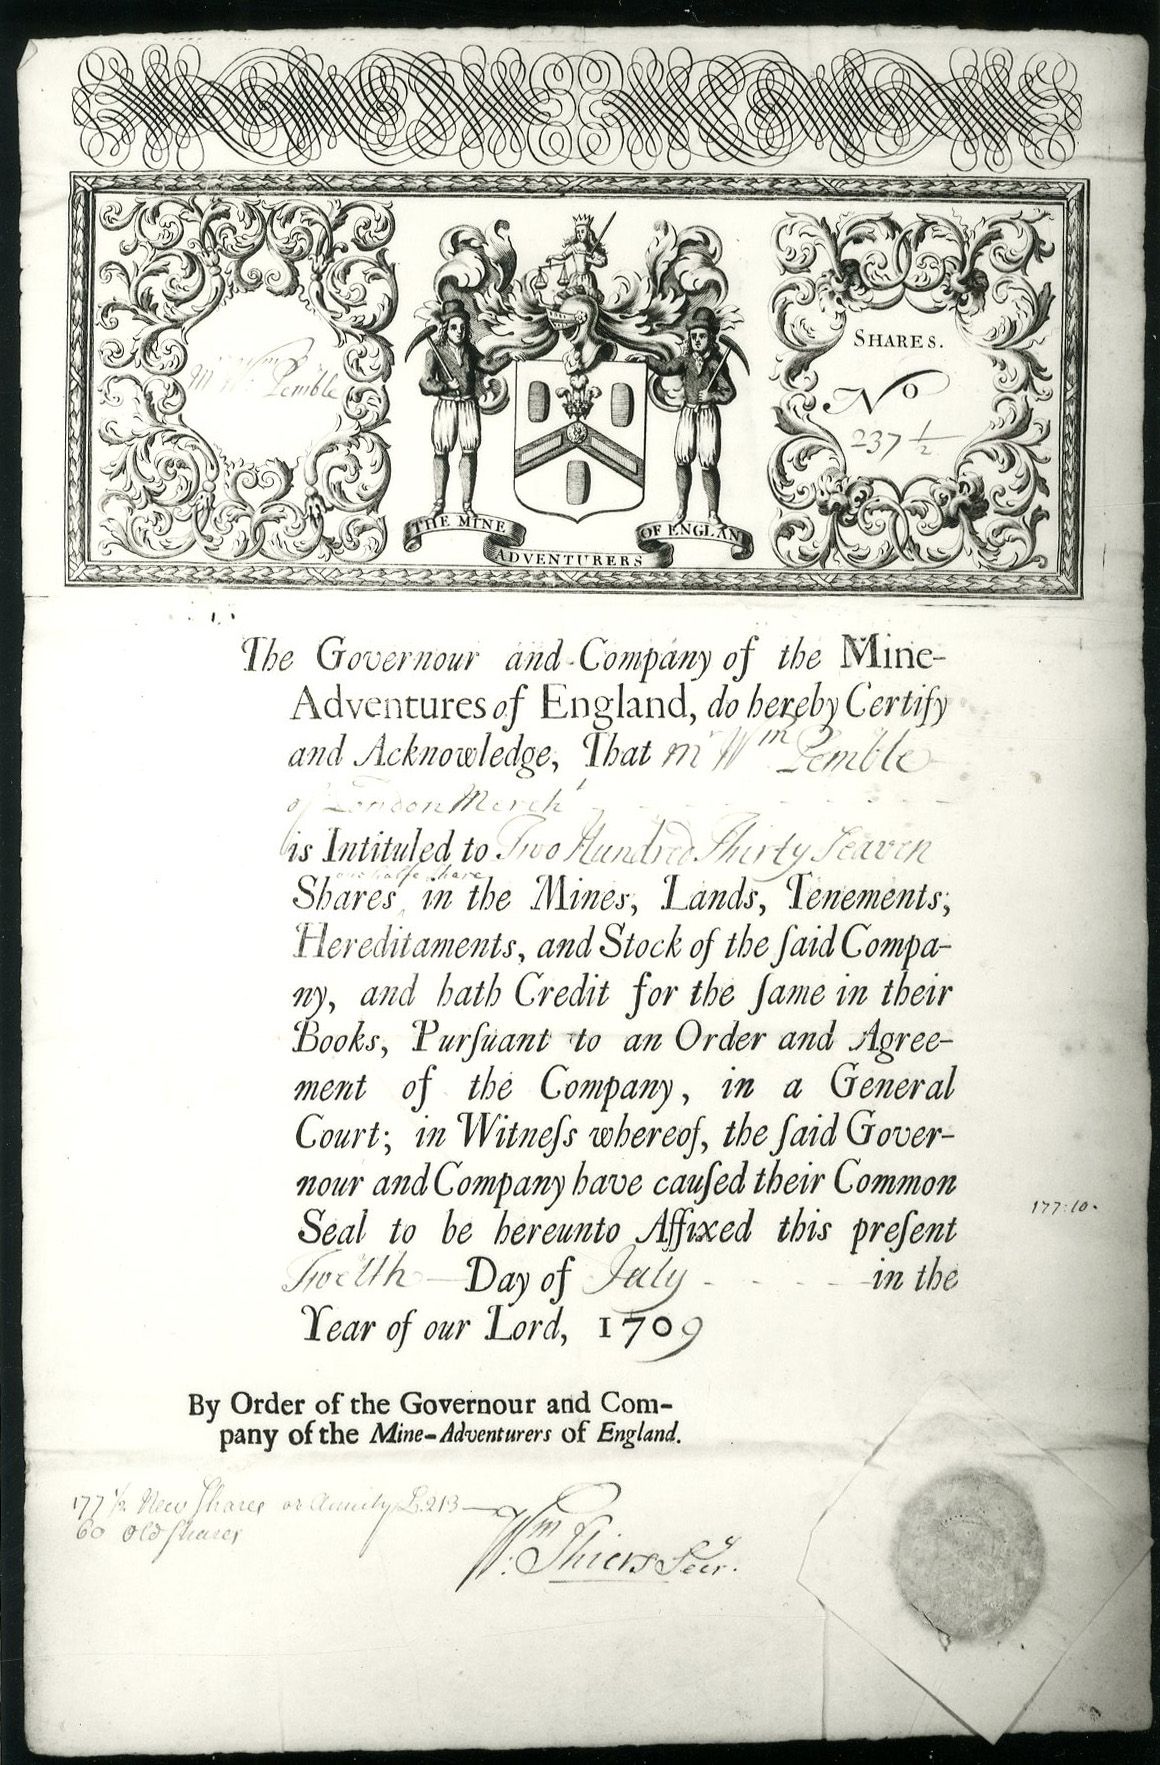 Mr Wm Pemble
SHARES.
No
237 1/2
THE MINE
ADVENTURERS
OF ENGLAN
The Governour and Company of the Mine-
Adventures of England, do hereby Certify
and Acknowledge, That Mr Wm Pemble
of London Mercht
is Intituled to Two Hundred Thirty Seaven
one halfe share
Shares in the Mines, Lands, Tenements,
Hereditaments, and Stock of the ſaid Compa-
ny, and hath Credit for the ſame in their
Books, Purſuant to an Order and Agree-
ment of the Company, in a General
Court; in Witneſs whereof, the ſaid Gover-
nour and Company have cauſed their Common
Seal to be hereunto Affixed this preſent
Twelth Day of July in the
Year of our Lord, 1709
177:10.
By Order of the Governour and Com-
pany of the Mine-Adventurers of England.
177 1/2 New Shares or Anuity L.213
60 Old Shares
Wm: Shiers Secr.y